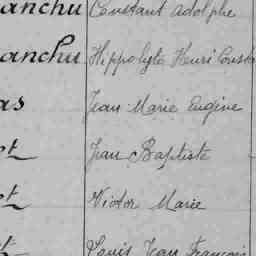 anchu Constant Adolphe
anchu Hippolyte Henri Const
as Jean Marie Eugène
et Jean Baptiste
et Victor Marie
Louis Jean François